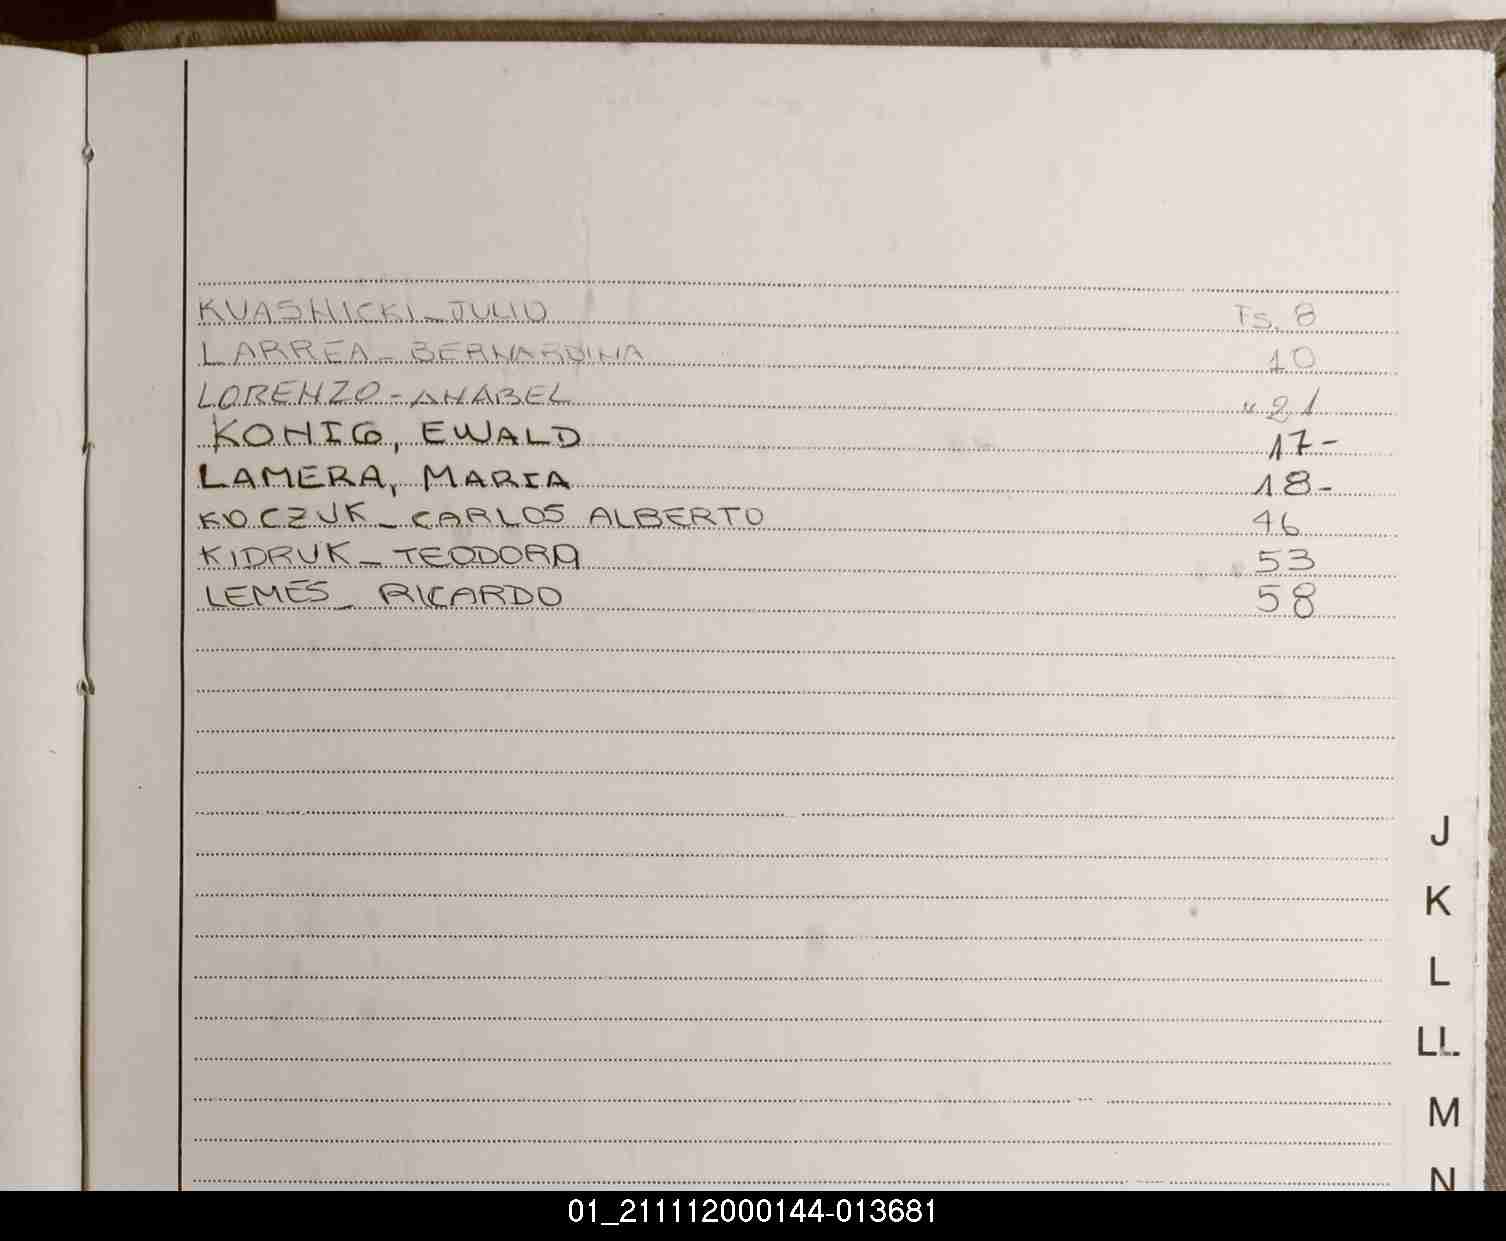 KUASNICKI_JULIO Fs. 8
LARREA_BERNARDINA 10
LORENZO-ANABEL " 21
KONIG, EWALD 17-
LAMERA, MARIA 18-
KOCZUK_CARLOS ALBERTO 46
KIDRUK_TEODORA 53
LEMES_RICARDO 58
J
K
L
LL
M
N
01_211112000144-013681